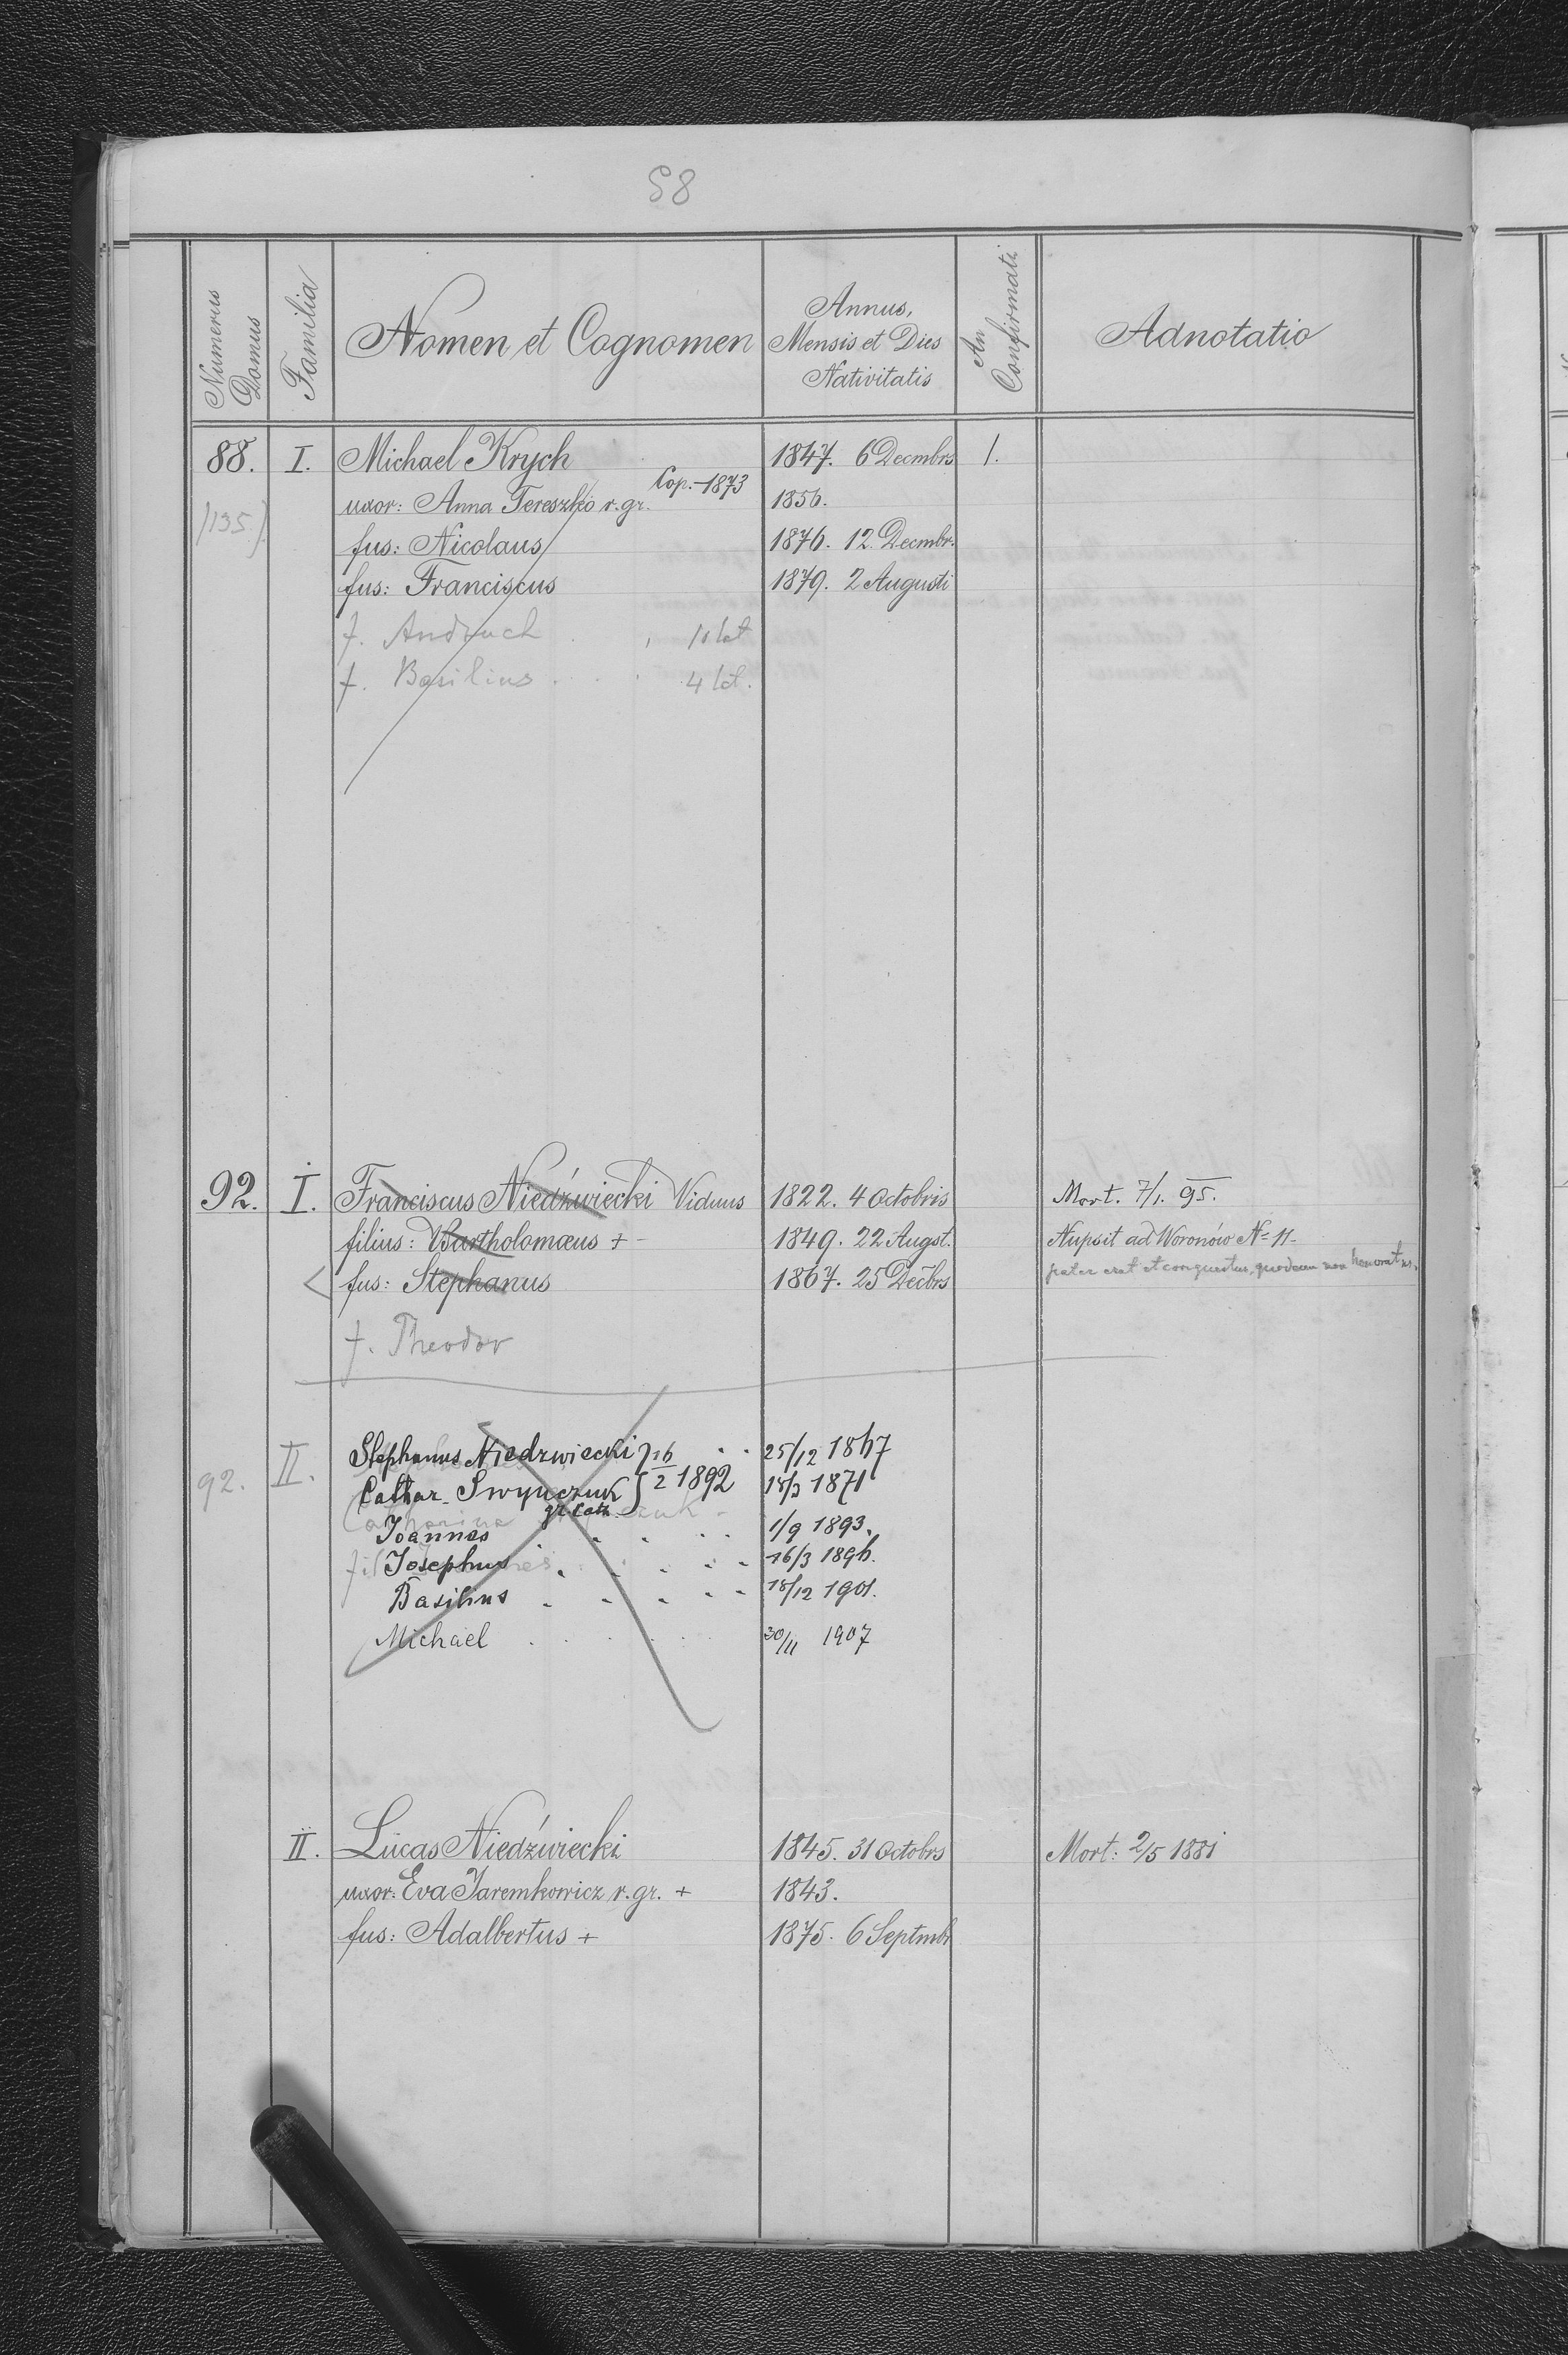 58
Numerus Domus
Familia
Nomen et Cognomen
Annus, Mensis et Dies Nativitatis
An Confirmati
Adnotatio
88. I. Michael Krych 1847. 6 Decmbrs 1.
Cop. 1873
/135./ uxor: Anna Tereszko r. gr. 1856.
fus: Nicolaus 1876. 12. Decmbr.
fus: Franciscus 1879. 2 Augusti
f. Andruch 10 lat
f. Basilius 4 lat.
92. I. Franciscus Niedźwiecki Viduus 1822. 4 Octobris Mort. 7/1. 95.
filius: Bartholomæus + 1849. 22 Augst. Nupsit ad Woronów N= 11-
fus: Stephanus 1867. 25 Decbrs pater erat et conquestus, non honoratus.
f. Theodor
92. II. Stephanus Niedzwiecki } 16/2 1892 25/12 1867
Cathar. Swynczuk 18/3 1871
gr. cath.
Joannes 1/9 1893.
Josephus 16/3 1896.
Basilius 18/12 1901.
Michael 30/11 1907
II. Lucas Niedźwiecki 1845. 31 Octobrs Mort: 2/5 1881
uxor: Eva Jaremkowicz r. gr. + 1843.
fus: Adalbertus + 1875. 6 Septmbr